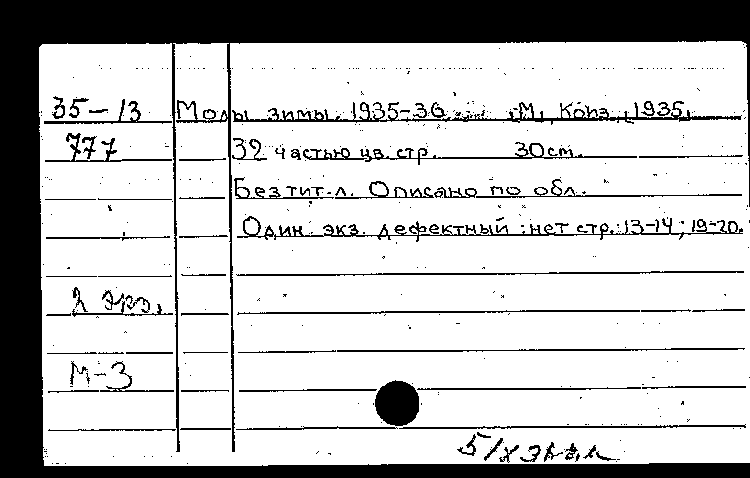 35-13 Моды зимы. 1935-36 М, Коиз, 1935,
777 32 частью цв. стр. 30 cm.
Без тит. л. Описано по обл.
Один экз. дефектный: нет стр. 13-14; 19-20.
2 экз.
М-3
5/X